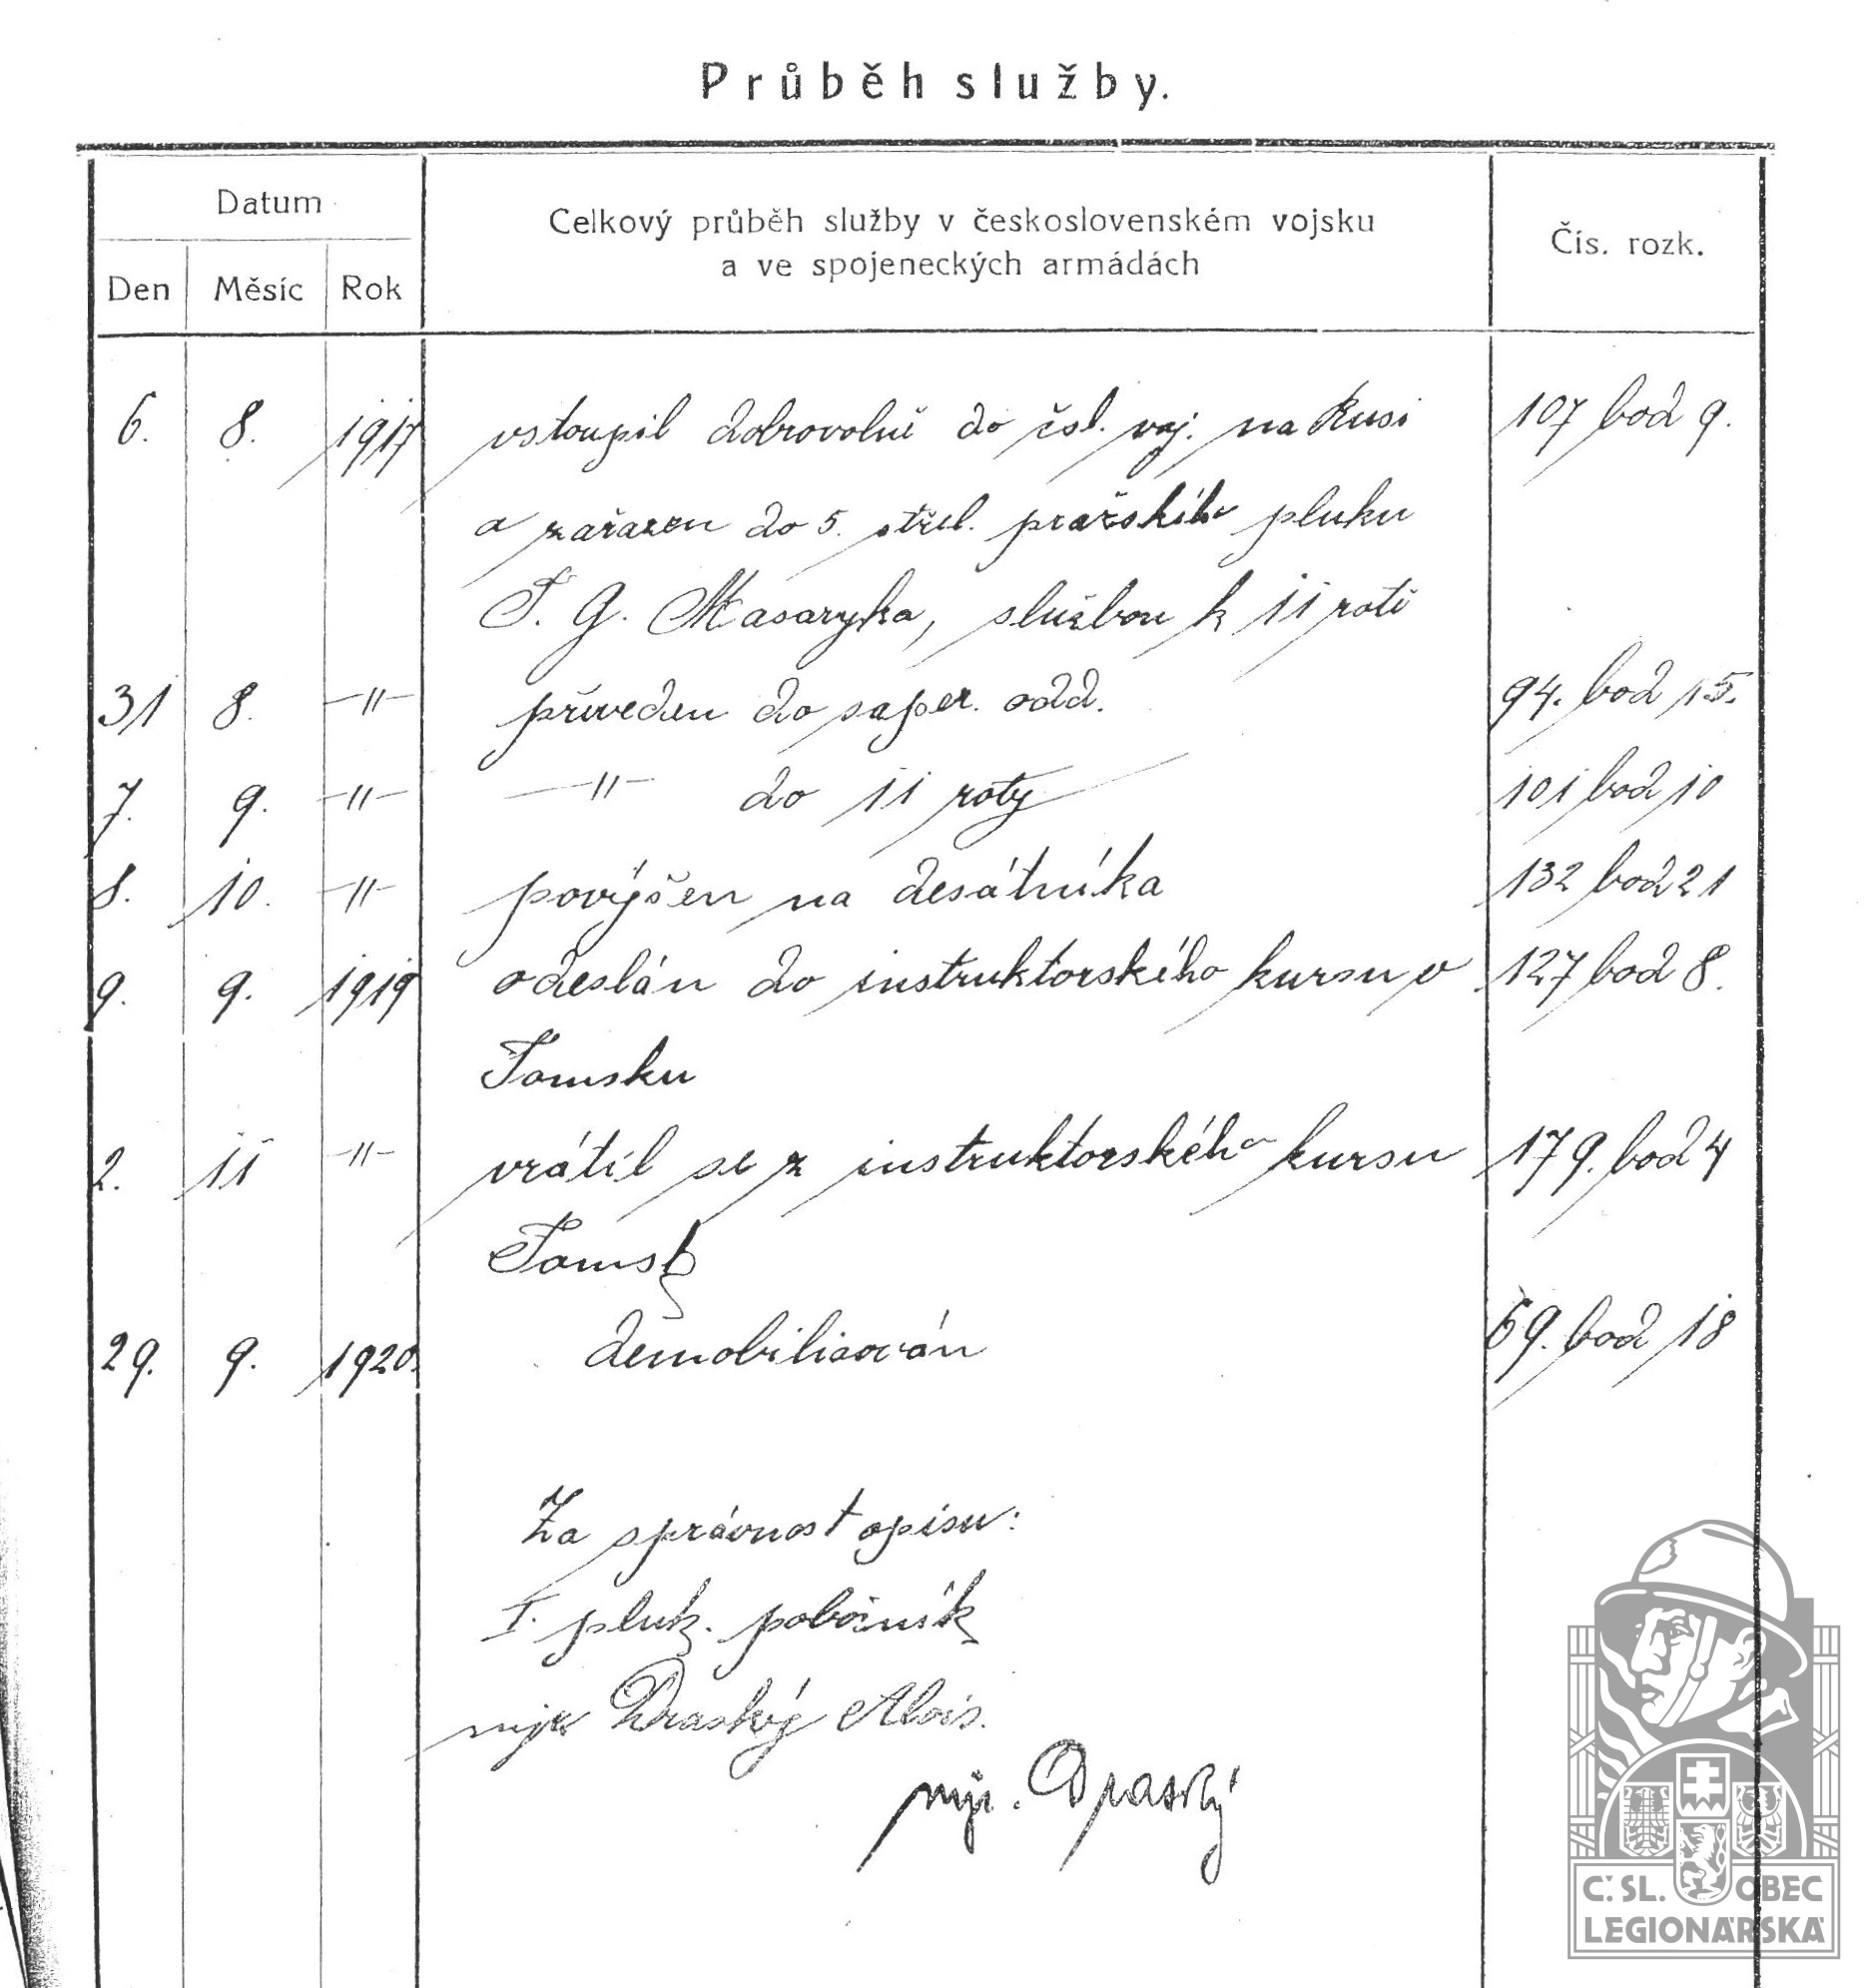 Průběh služby.
Datum
Celkový průběh služby v československém vojsku
a ve spojeneckých armádách
Čís. rozk.
Den Měsíc Rok
6. 8. 1917 vstoupil dobrovolně do čsl. voj. na Rusi 107 bod 9.
a zařazen do 5. střel. pražského pluku
T. G. Masaryka, službou k 11 rotě
31 8. —"— převeden do saper. odd. 94. bod 15.
7. 9. —"— —"— do 11 roty 101 bod 10
8. 10. —"— povýšen na desátníka 132 bod 21
9. 9. 1919 odeslán do instruktorského kursu v 127 bod 8.
Tomsku
2. 11 —"— vrátil se z instruktorského kursu 179. bod 4
Tomsk
29. 9. 1920. demobilisován 69. bod 18
Za správnost opisu:
I. pluk. pobočník
mjr Draský Alois.
mjr. Draský
Č.SL. OBEC
LEGIONÁŘSKÁ